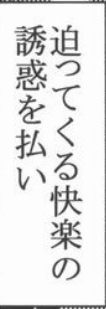 迫ってくる快楽の
誘惑を払い